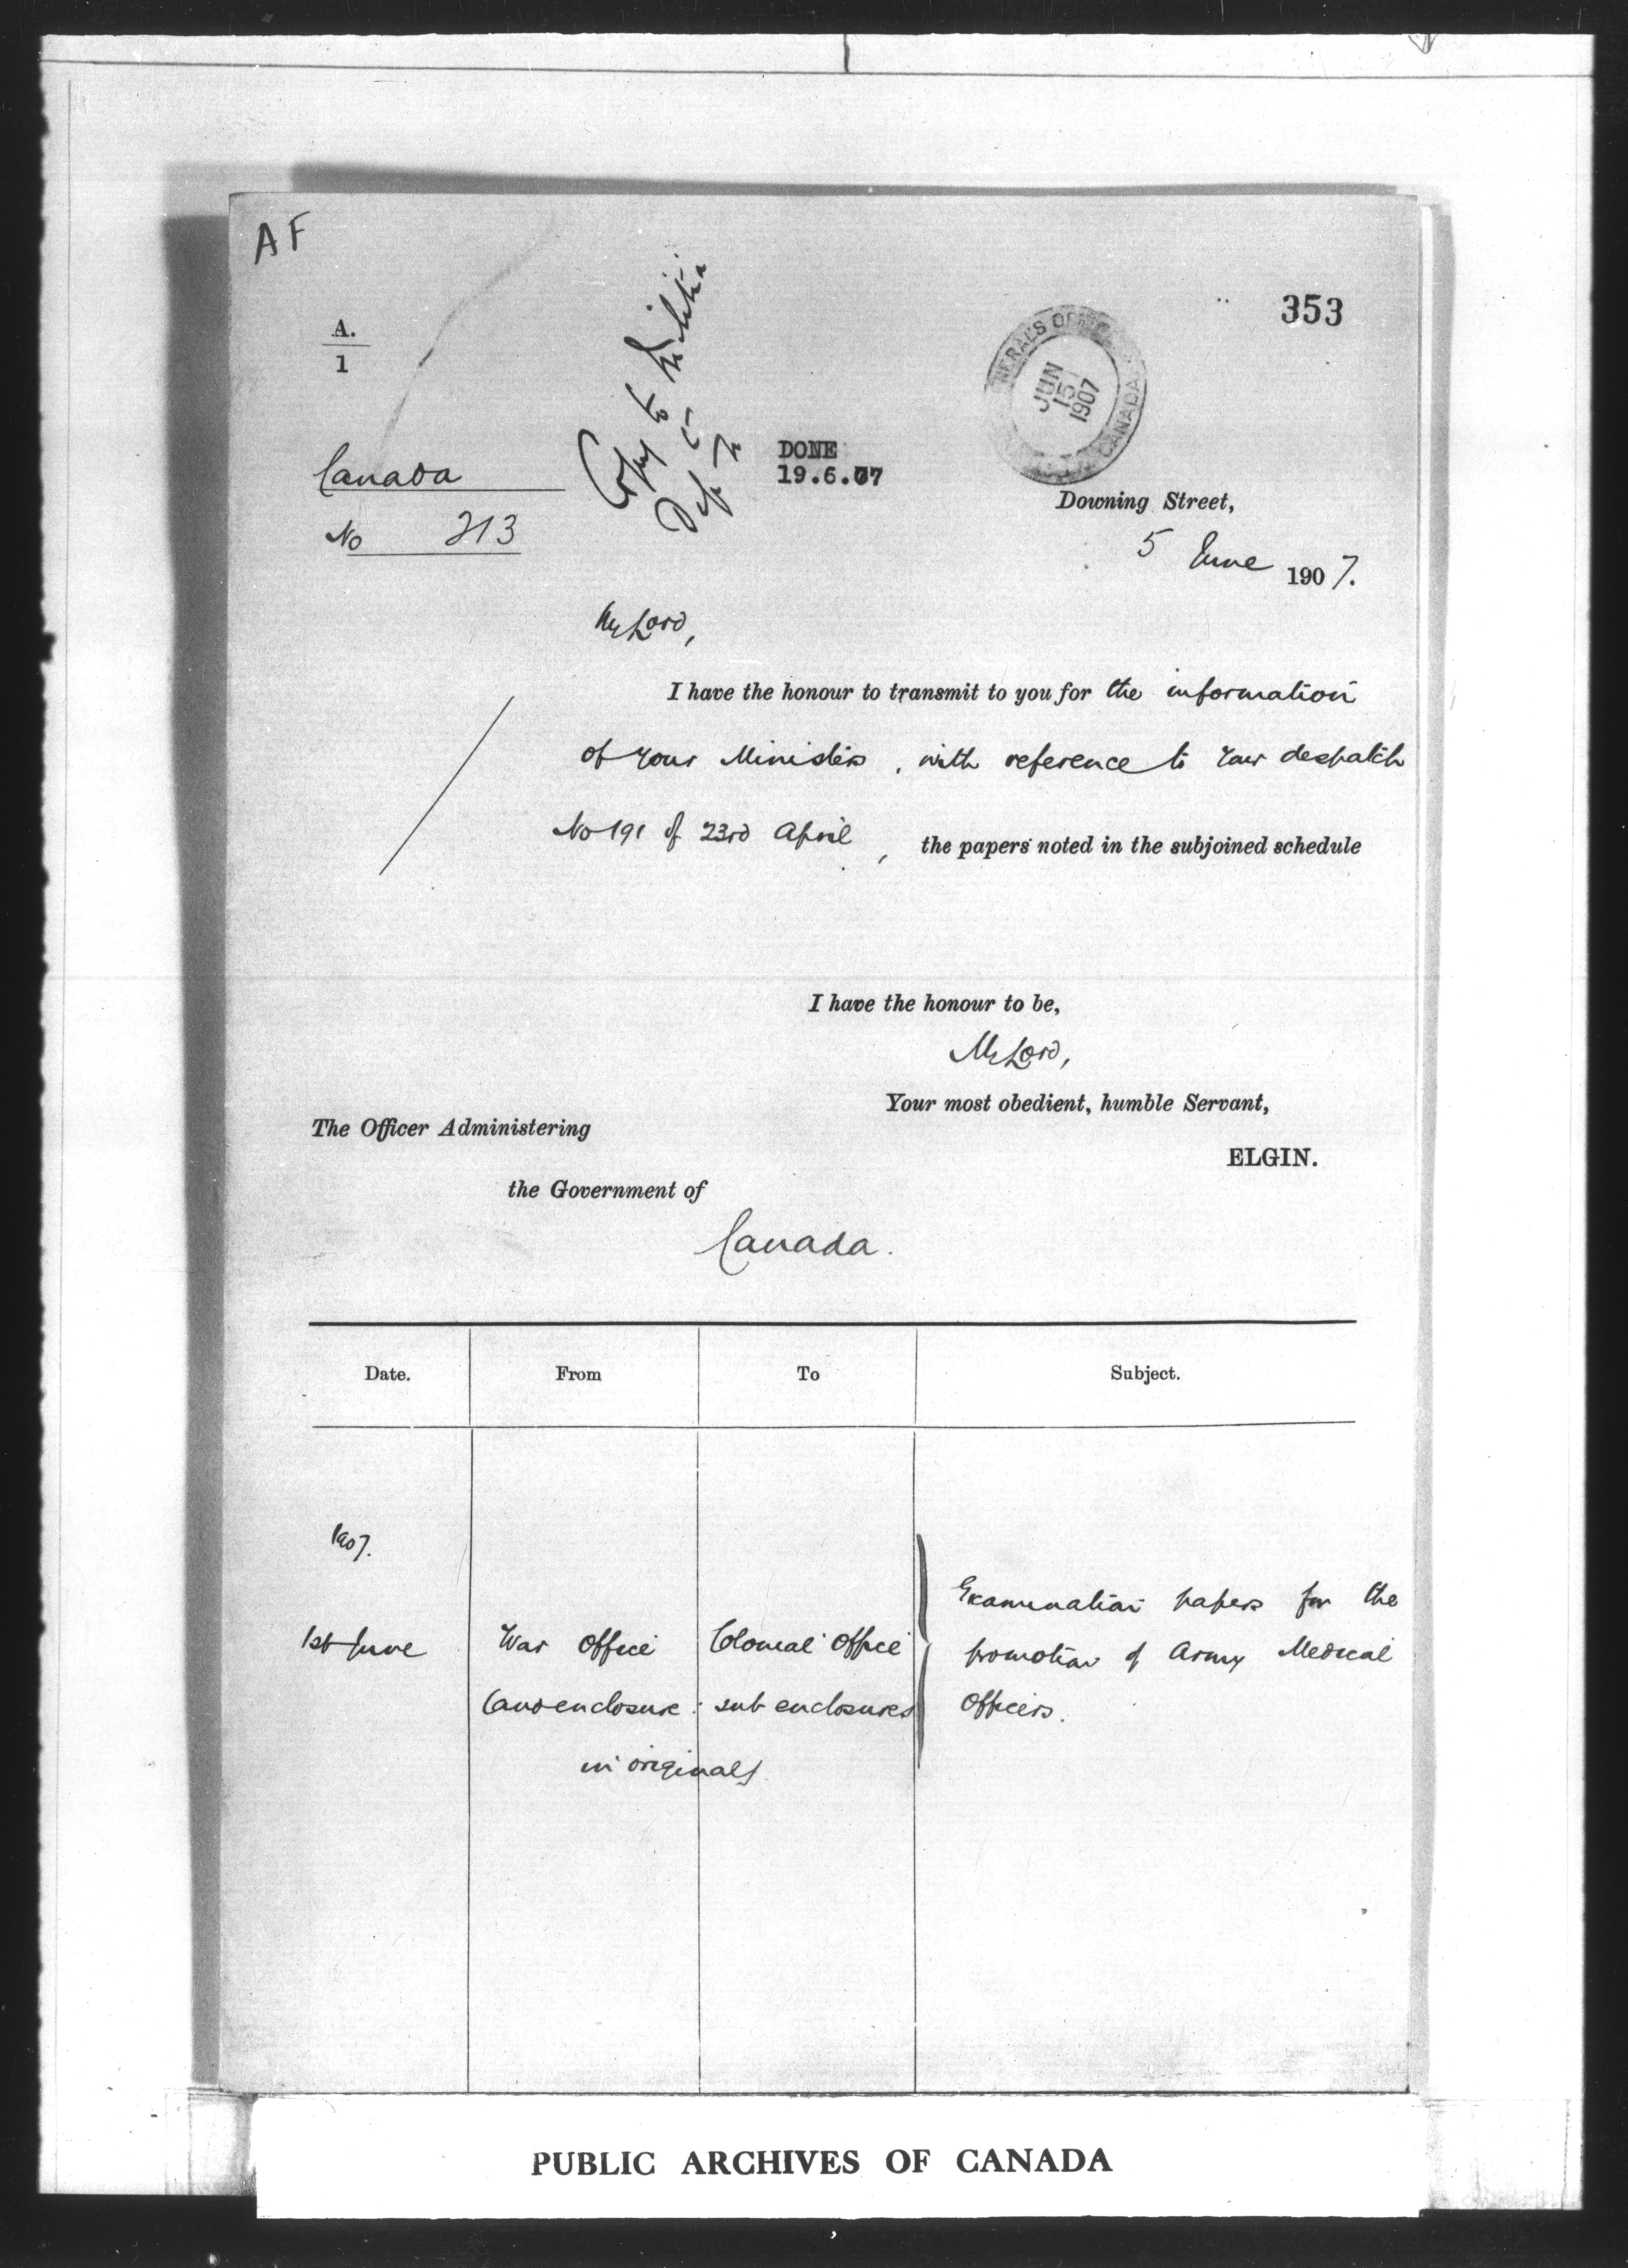 AF
353
A.
1
Copy to Militia
Dept
DONE
19.6.07
NERAL'S OFFICE
JUN
15
1907
CANADA
Canada
No 213
Downing Street,
5 June 1907.
My Lord,
I have the honour to transmit to you for the information
of your Ministers, with reference to your despatch
No 191 of 23rd April, the papers noted in the subjoined schedule
I have the honour to be,
My Lord,
Your most obedient, humble Servant,
The Officer Administering
ELGIN.
the Government of
Canada.
Date. From To Subject.
1907.
Examination papers for the
1st June War Office Colonial Office promotion of Army Medical
(and enclosure: sub enclosures Officers.
in original)
PUBLIC ARCHIVES OF CANADA